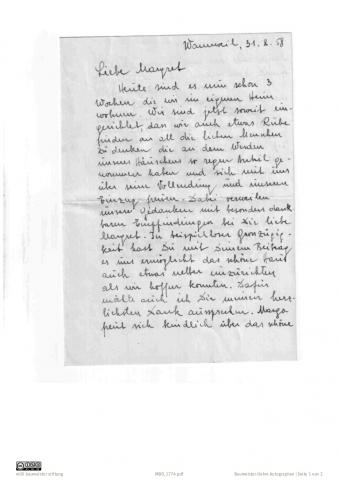 Wannweil, 31.8.58
Liebe Margret
Heute sind es nun schon 3
Wochen die wir im eigenen Heim
wohnen. Wir sind jetzt soweit ein-
gerichtet, das wir auch etwas Ruhe
finden an all die lieben Menschen
zu denken die an dem Werden
unseres Häuschens so regen Anteil ge-
nommen haben und sich mit uns
über seine Vollendung und unseren
Einzug freuen. Dabei verweilen
unsere Gedanken mit besonders dank
baren Empfindungen bei Dir liebe
Margret. In beispielloser Grosszügig-
keit hast Du mit Deinem Beitrag
es uns ermöglicht das schöne Haus
auch etwas netter einzurichten
als wir hoffen konnten. Dafür
möchte auch ich Dir meinen herz-
lichsten Dank aussprechen. Margo
freut sich kindlich über das schöne
willi baumeister stiftung
Baumeister-Rehm Autographen | Seite 1 von 2